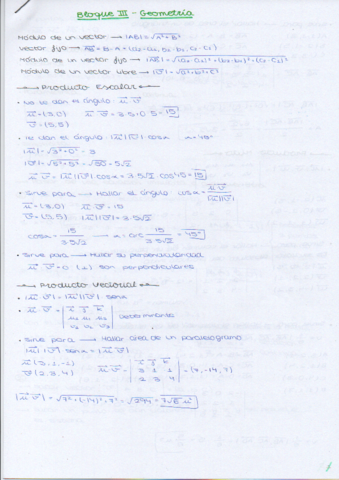 Bloque III - Geometría
Módulo de un vector → |AB| = √a²+b²
Vector fijo → AB = B-A = (a₂-a₁, b₂-b₁, c₂-c₁)
Módulo de un vector fijo → |AB| = √(a₂-a₁)²+(b₂-b₁)²+(c₂-c₁)²
Módulo de un vector libre → |v| = √a²+b²+c²
Producto Escalar
• No te dan el ángulo u·v
u = (3,0) u·v = 3·5+0·5 = 15
v = (5,5)
• Te dan el ángulo |u|·|v|·cosα α = 45º
|u| = √3²+0² = 3
|v| = √5²+5² = √50 = 5√2
u·v = |u|·|v|·cosα = 3·5√2·cos45 = 15
• Sirve para → Hallar el ángulo cosα = u·v / |u|·|v|
u = (3,0) u·v = 15
v = (5,5) |u|·|v| = 3·5√2
cosα = 15 / 3·5√2 → α = arc 15 / 3·5√2 = 45º
• Sirve para → Hallar su perpendicularidad
u·v = 0 (⊥) son perpendiculares
Producto Vectorial
• |u×v| = |u|·|v|·senα
• u×v = | i j k | u₁ u₂ u₃ | v₁ v₂ v₃ | Determinante
• Sirve para → Hallar área de un paralelogramo
|u|·|v|·senα = |u×v|
u (3,1,-1) u×v = | i j k | 3 1 -1 | 2 3 4 | = (7,-14,7)
v (2,3,4)
|u×v| = √7²+(-14)²+7² = √294 = 7√6 u²